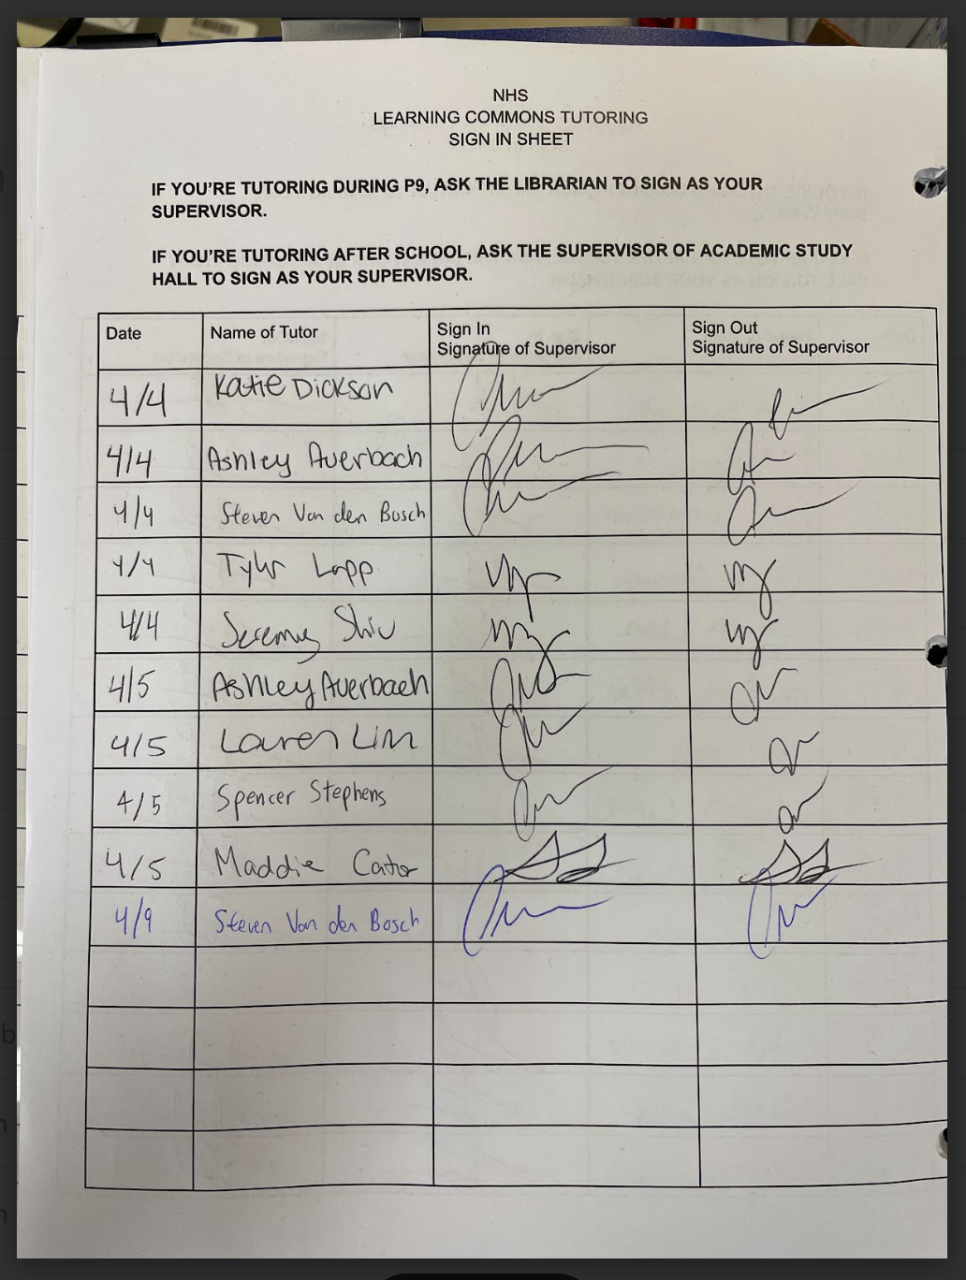 NHS
LEARNING COMMONS TUTORING
SIGN IN SHEET
IF YOU'RE TUTORING DURING P9, ASK THE LIBRARIAN TO SIGN AS YOUR
SUPERVISOR.
IF YOU'RE TUTORING AFTER SCHOOL, ASK THE SUPERVISOR OF ACADEMIC STUDY
HALL TO SIGN AS YOUR SUPERVISOR.
Date Name of Tutor Sign In Sign Out
Signature of Supervisor Signature of Supervisor
4/4 Katie Dickson
4/4 Ashley Auerbach
4/4 Steven Van den Bosch
4/4 Tyler Lapp
4/4 Jeremy Shiu
4/5 Ashley Auerbach
4/5 Lauren Lim
4/5 Spencer Stephens
4/5 Maddie Cator
4/9 Steven Van den Bosch